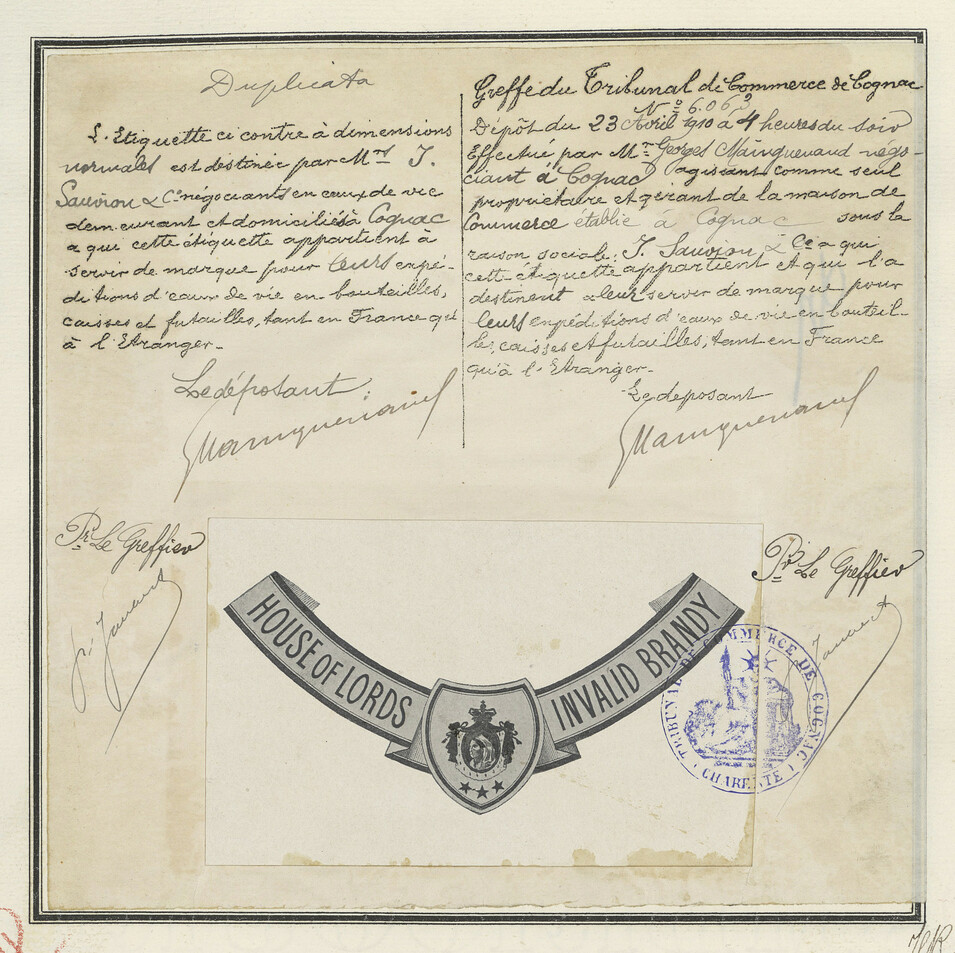 Duplicata
L. Etiquette ci contre à dimensions
normales est destinée par Mrs J.
Sauvion & Cie négociants en eaux de vie
demeurant et domiciliés à Cognac
a qui cette étiquette appartient à
servir de marque pour leurs expé-
ditions d'eaux de vie en bouteilles,
caisses et futailles, tant en France qu'
à l'Etranger-
Le déposant:
GMainguenaud
Pr Le Greffier
Greffe du Tribunal de Commerce de Cognac
No 6.063
Dépôt du 23 Avril 1910 à 4 heures du soir
Effectué par Mr Georges Mainguenaud négo-
ciant à Cognac agissant comme seul
propriétaire et gérant de la maison de
Commerce établie à Cognac sous la
raison sociale: J. Sauvion & Cie a qui
cette étiquette appartient et qui l'a
destinent a leur servir de marque pour
leurs expéditions d'eaux de vie en bouteil-
les, caisses et futailles, tant en France
qu'à l'Etranger-
Le deposant
GMainguenaud
Pr Le Greffier
HOUSE OF LORDS
INVALID BRANDY
TRIBUNAL DE COMMERCE DE COGNAC
CHARENTE